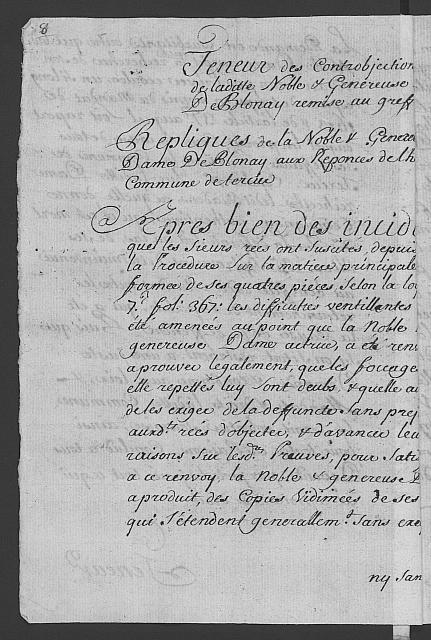 8
Teneur des Controbjection
de laditte Noble & Genereuse
De Blonay remise au greff
Repliques de la Noble & Genere
Dame De Blonay aux Réponces de lh
Commune de tercier
Apres bien des incid
que les Sieurs rées ont Suscités, depuis
la Procedure Sur la matiere principale
formée de ses quatres piéces Selon la
7. fol: 367: les difficultés ventillantes
été amenées au point que la Noble
genereuse Dame actrice, a été renv
aprouver legalement, que les foccages
elle repettés luy sont deubs, & quelle a
de les exiger de la deffuncte Sans prej
auxd.ts rées d'objecter, & d'avancer leu
raisons Sur lesd. Preuves, pour Satis
a ce renvoy, la Noble & genereuse D
a produit, des Copies Vidimées de ses
qui S'étendent generallem.t Sans exe
ny San